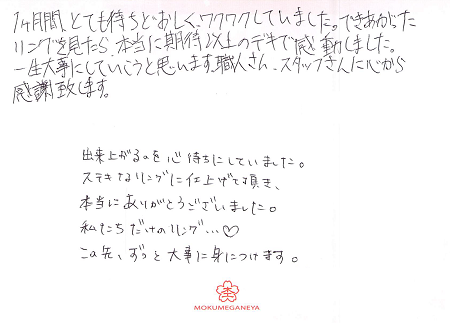 1ヶ月間、とても待ちどおしく、ワクワクしていました。できあがった
リングを見たら、本当に期待以上のデキで感動しました。
一生大事にしていこうと思います。職人さん、スタッフさんに心から
感謝致します。
出来上がるのを心待ちにしていました。
ステキなリングに仕上げて頂き、
本当にありがとうございました。
私たちだけのリング…♡
この先、ずっと大事に身につけます。
MOKUMEGANEYA